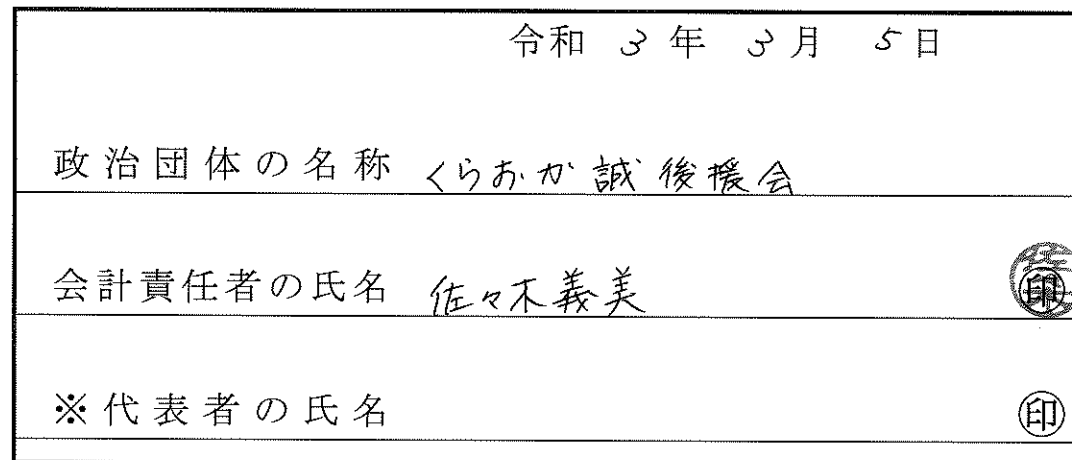 令和 3 年 3 月 5 日
政治団体の名称 くらおか誠後援会
会計責任者の氏名 佐々木義美 印
※代表者の氏名 印